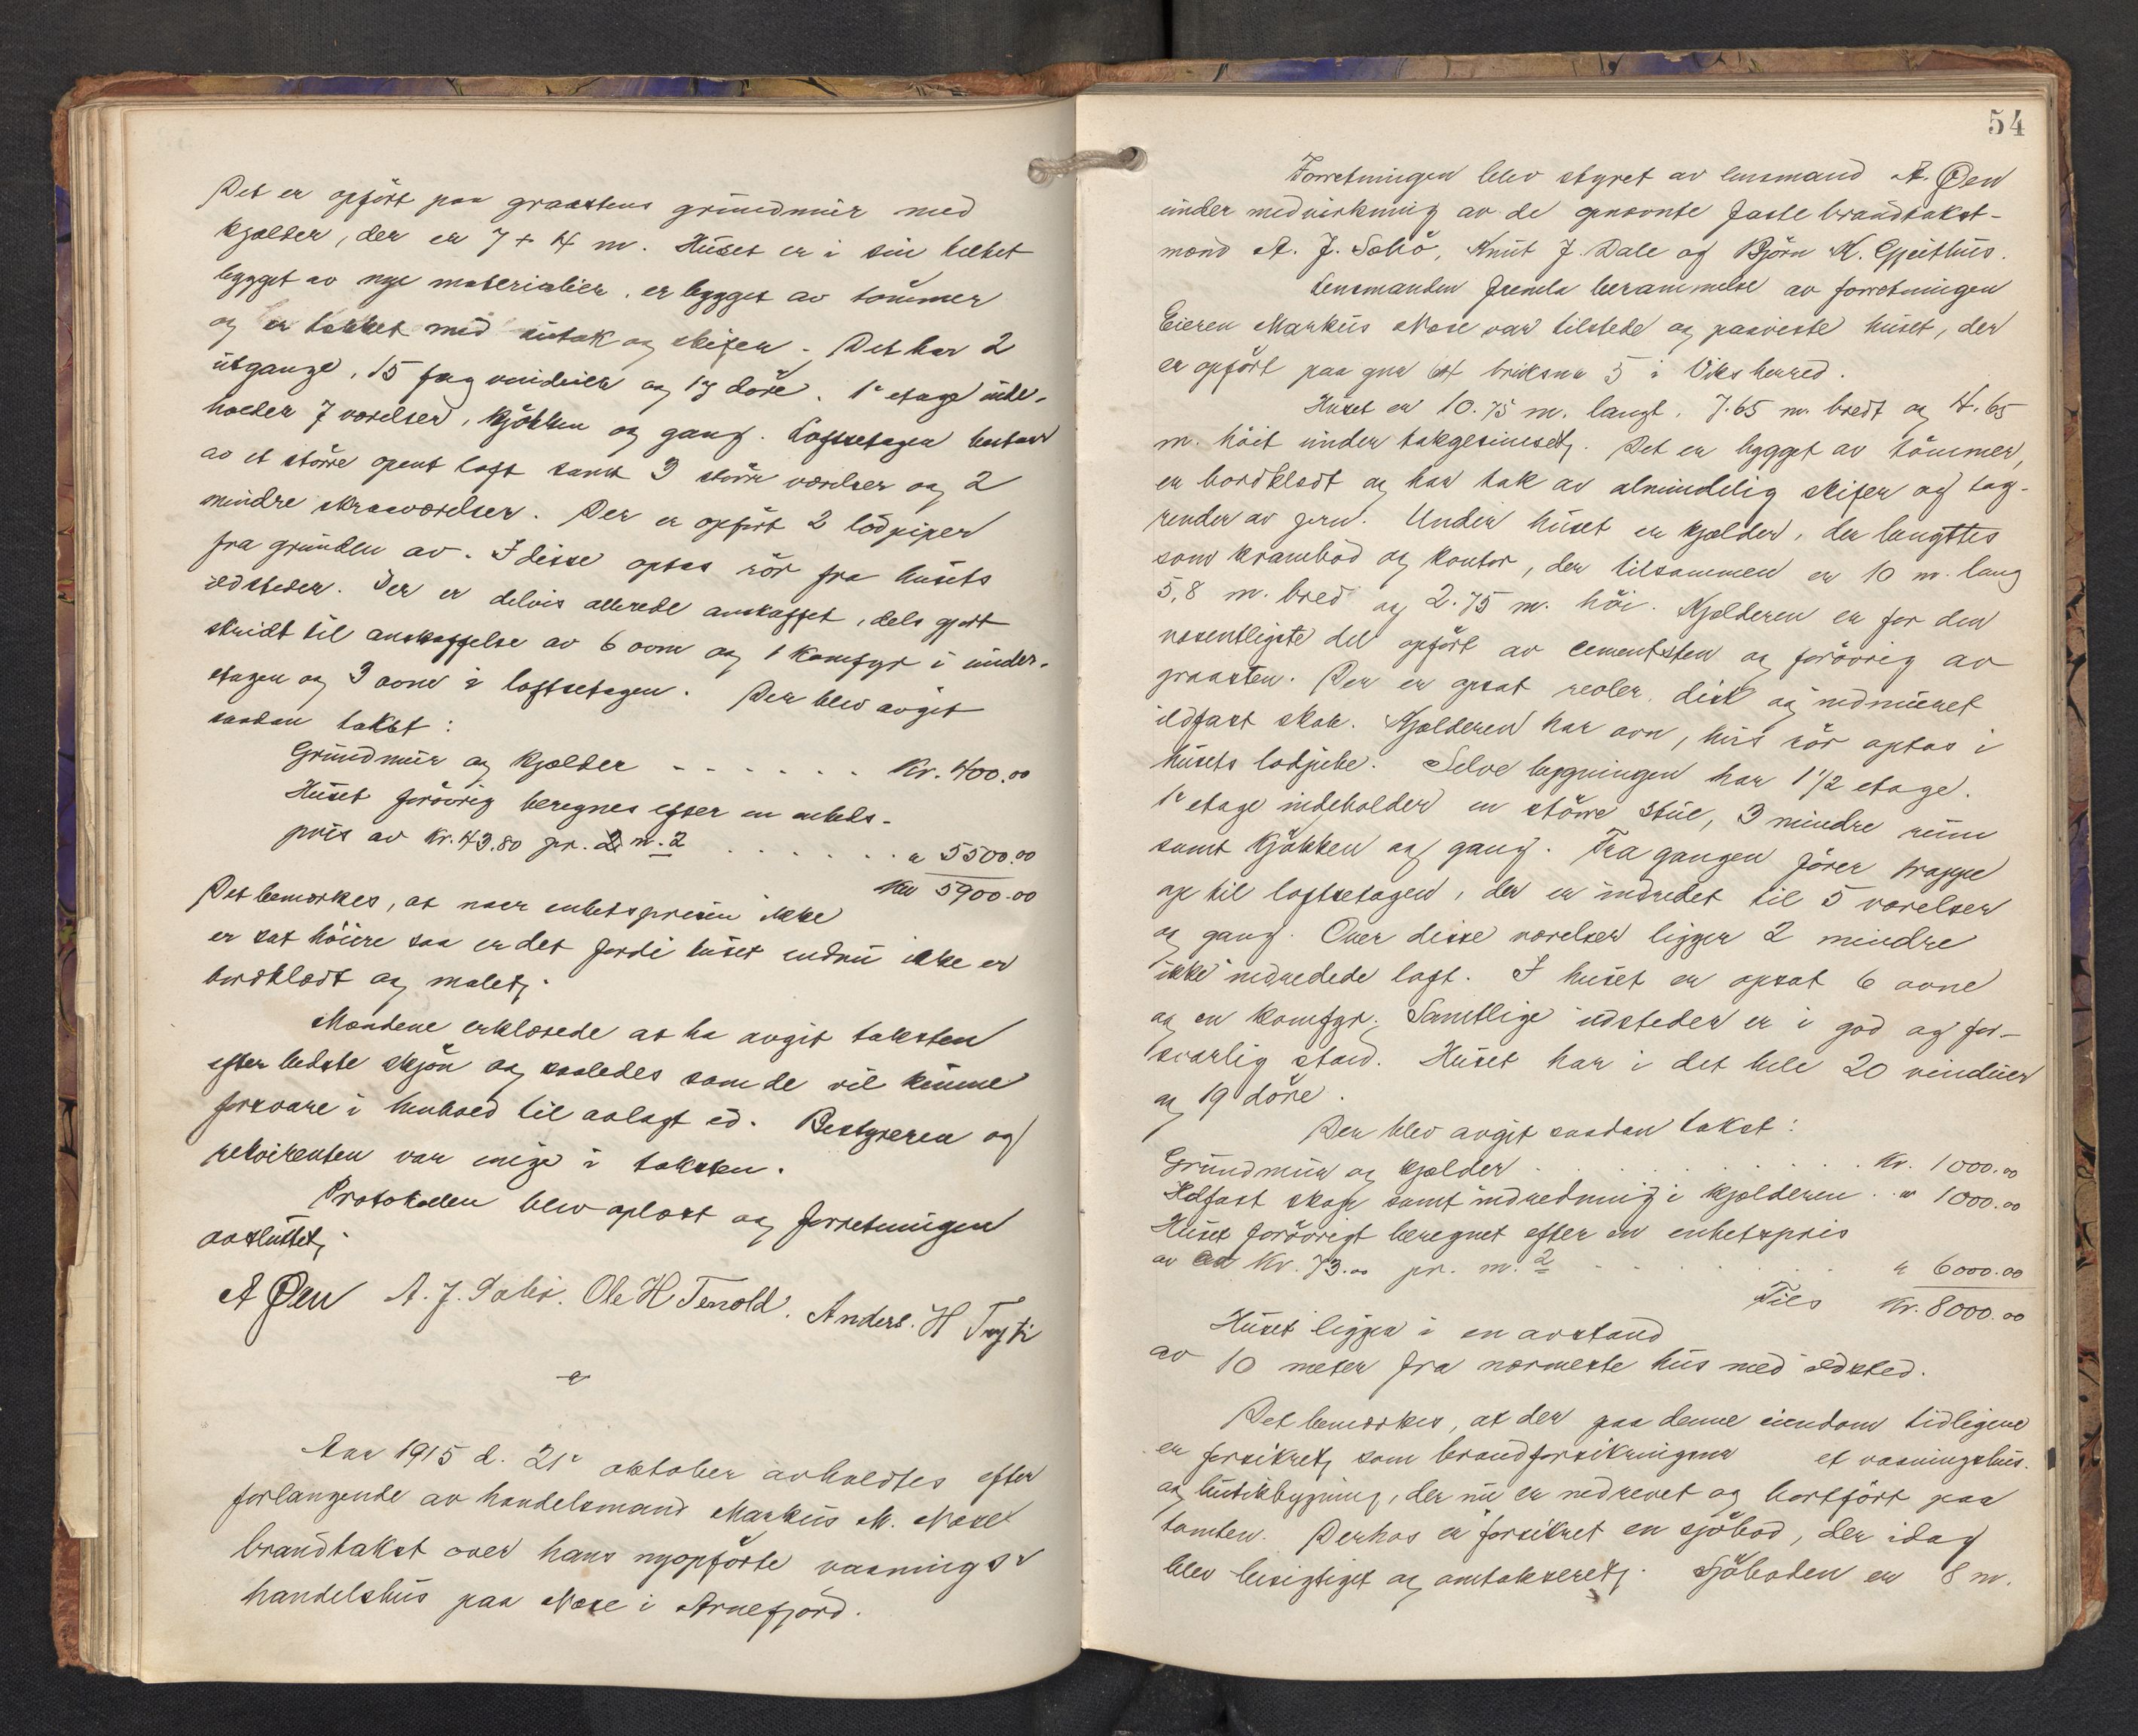 Det er opført paa graastens grundmur med
kjælder, der er 7 + 4 m. Huset er i sin helhet
bygget av nye materialier, er bygget av tømmer
og er tækket med sutak og skifer. Det har 2
utgange, 15 fag vinduer og 13 døre. 1e etage inde-
holder 7 værelser, kjøkken og gang. Loftsetagen bestaar
av et større opent loft samt 3 større værelser og 2
mindre skraaværelser. Der er opført 2 lodpiper
fra grunden av. I disse optas rør fra husets
ildsteder. Der er delvis allerede anskaffet, dels gjort
skridt til anskaffelse av 6 ovne og 1 komfyr i under-
etagen og 3 ovne i loftsetagen. Der blev avgit
saadan takst:
Grundmur og kjælder . . . . . . Kr. 400.00
Huset forøvrig beregnes efter en enheds-
pris av Kr. 43.80 pr. m.2 . . . . . . " 5500.00
Kr 5900.00
Det bemerkes, at naar enhetsprisen ikke
er sat høiere saa er det fordi huset endnu ikke er
bordklædt og malet.
Mændene erklærede at ha avgit taksten
efter bedste skjøn og saaledes som de vil kunne
forsvare i henhold til avlagt ed. Bestyreren og
rekvirenten var enige i taksten.
Protokollen blev oplæst og forretningen
avsluttet.
A Øen A. J. Sabø. Ole H Tenold. Anders. H Tryti
Aar 1915 d. 21e oktober avholdtes efter
forlangende av handelsmand Markus M. Nese
brandtakst over hans nyopførte vaanings &
handelshus paa Nese i Arnefjord.
54
Forretningen blev styret av lensmand A. Øen
under medvirkning av de opnævnte faste brandtakst-
mænd A. J. Sabø, Knut J. Dale og Bjørn K. Gjeithus.
Lensmanden fremla berammelse av forretningen
Eieren Markus Nese var tilstede og paaviste huset, der
er opført paa gnr 64 bruksnr 5 i Viks herred.
Huset er 10.75 m. langt, 7.65 m. bredt og 4.65
m. høit under takgesimset. Det er bygget av tømmer,
er bordklædt og har tak av almindelig skifer og tag-
render av jern. Under huset er kjælder, der benyttes
som krambod og kontor, der tilsammen er 10 m. lang
5,8 m. bred og 2.75 m. høi. Kjælderen er for den
væsentligste del opført av cementsten og forøvrig av
graasten. Der er opsat reoler, disk og nedmuret
ildfast skab. Kjælderen har ovn, hvis rør optas i
husets lodpibe. Selve bygningen har 1 1/2 etage.
1e etage indeholder en større stue, 3 mindre rum
samt kjøkken og gang. Fra gangen fører trappe
op til loftsetagen, der er indredet til 5 værelser
og gang. Over disse værelser ligger 2 mindre
ikke indredede loft. I huset er opsat 6 ovne
og en komfyr. Samtlige ildsteder er i god og for-
svarlig stand. Huset har i det hele 20 vinduer
og 19 døre.
Der blev avgit saadan takst:
Grundmur og kjælder . . . . . . Kr. 1000.00
Ildfast skap samt indredning i kjælderen . " 1000.00
Huset forøvrigt beregnet efter en enhetspris
av Kr. 73.00 pr. m.2 . . . . . . " 6000.00
Tils Kr. 8000.00
Huset ligger i en avstand
av 10 meter fra nærmeste hus med ildsted.
Det bemerkes, at der paa denne eiendom tidligere
er forsikret som brandforsikringsnr et vaaningshus
og butikbygning, der nu er nedrevet og bortført paa
tomten. Derhos er forsikret en sjøbod, der idag
blev besigtiget og omtakseret. Sjøboden er 8 m.